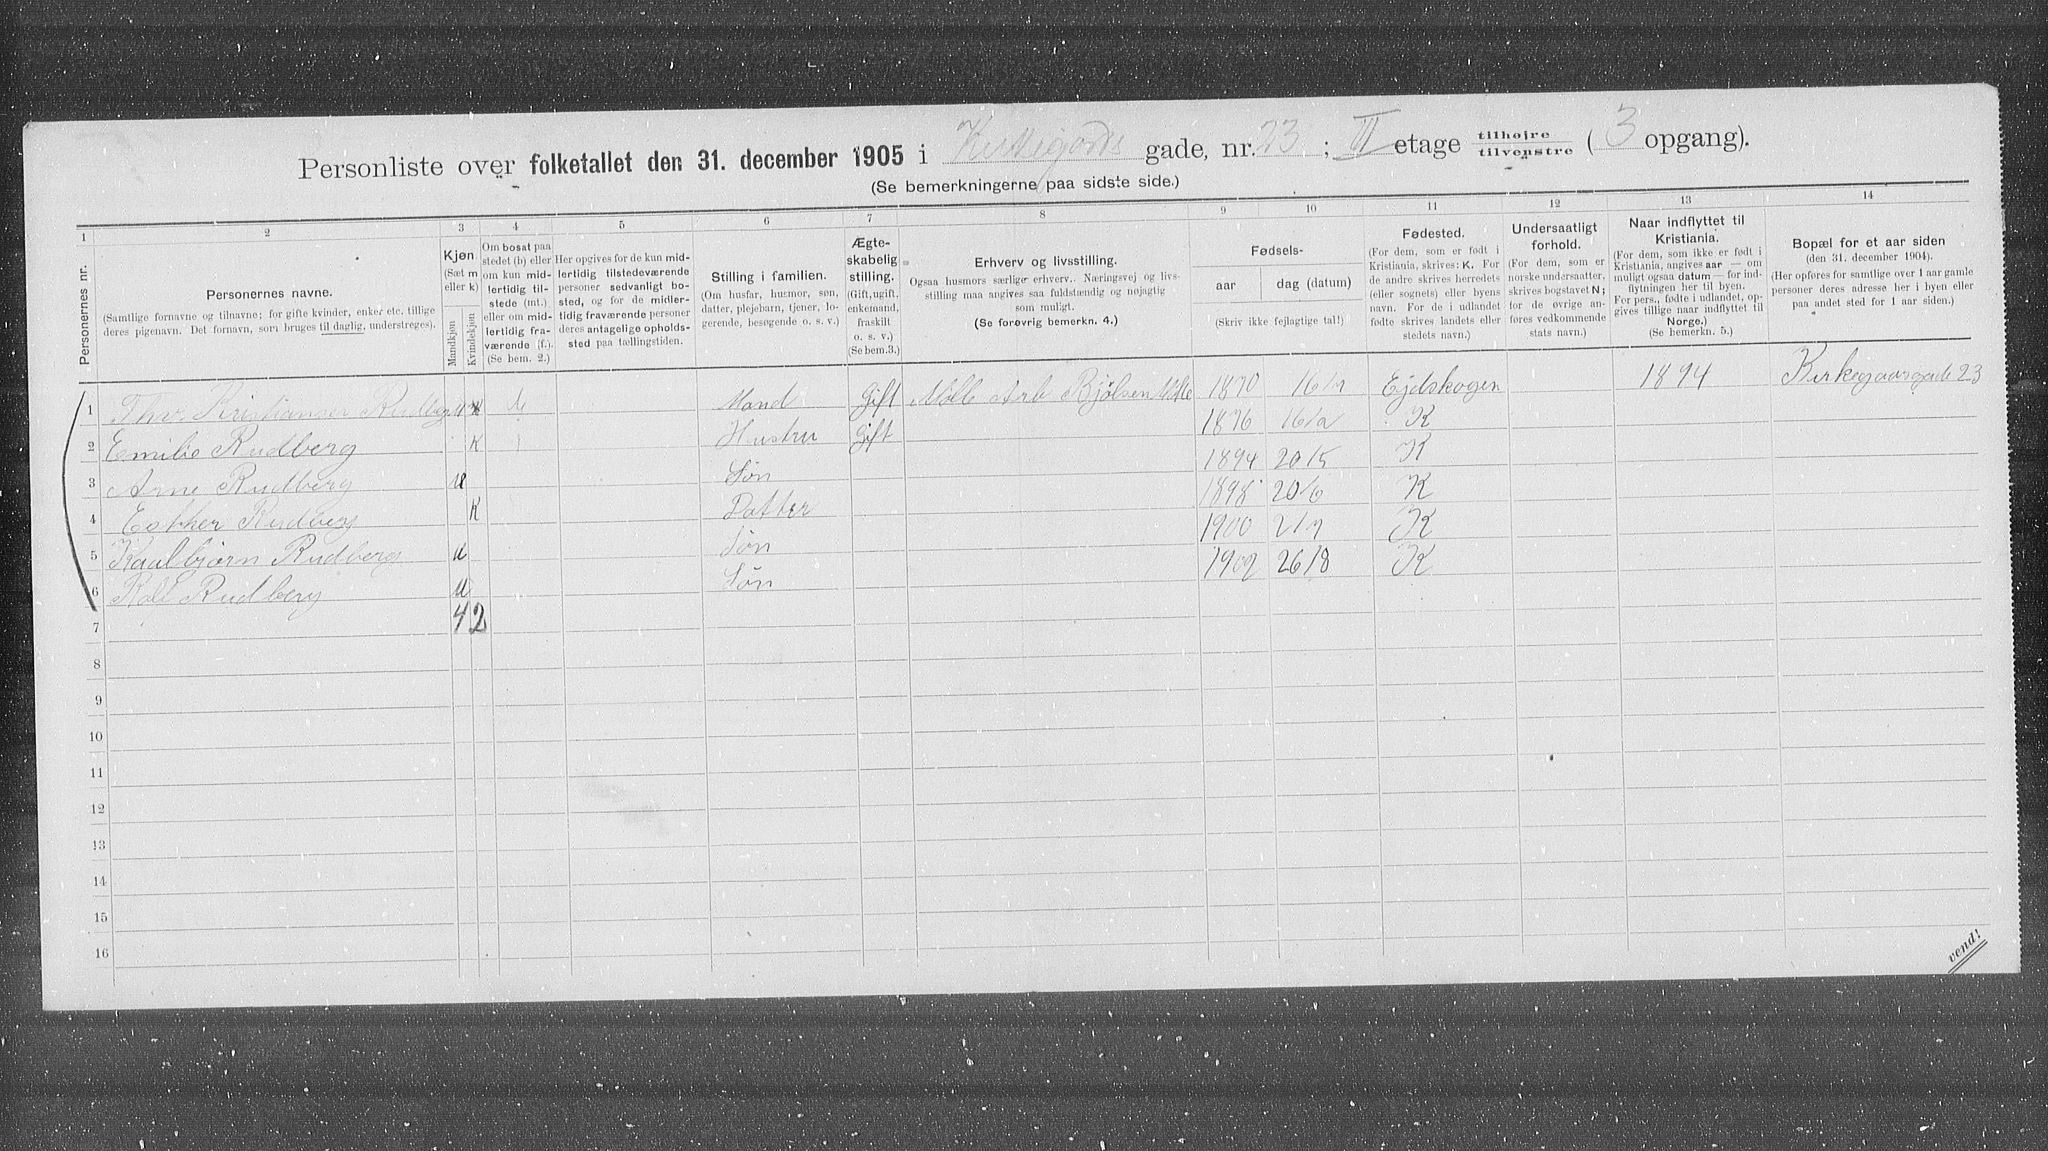 Personliste over folketallet den 31. december 1905 i Kirkegards gade, nr. 23 ; III etage tilhøire tilvenstre ( 3 opgang).
(Se bemerkningerne paa sidste side.)
1 2 3 4 5 6 7 8 9 10 11 12 13 14
Personernes nr.
Personernes navne.
(Samtlige fornavne og tilnavne; for gifte kvinder, enker etc. tillige deres pigenavn. Det fornavn, som bruges til daglig, understreges).
Kjøn
(Sæt m eller k)
Mandkjøn
Kvindekjøn
Om bosat paa stedet (b) eller om kun midlertidig tilstede (mt.) eller om midlertidig fraværende (f.). (Se bem. 2.)
Her opgives for de kun midlertidig tilstedeværende personer sedvanligt bosted, og for de midlertidig fraværende personer deres antagelige opholdssted paa tællingstiden.
Stilling i familien.
(Om husfar, husmor, søn, datter, plejebarn, tjener, logerende, besøgende o. s. v.)
Ægteskabelig stilling.
(Gift, ugift, enkemand, fraskilt o. s. v.) (Se bem.3.)
Erhverv og livsstilling.
Ogsaa husmors særlige erhverv. Næringsvej og livsstilling maa angives saa fuldstændig og nøjagtig som muligt.
(Se forøvrig bemerkn. 4.)
Fødsels-
aar
dag (datum)
(Skriv ikke fejlagtige tal!)
Fødested.
(For dem, som er født i Kristiania, skrives: K. For de andre skrives herredets (eller sognets) eller byens navn. For de i udlandet fødte skrives landets eller stedets navn.)
Undersaatligt forhold.
(For dem, som er norske undersaatter, skrives bogstavet N; for de øvrige anføres vedkommende stats navn.)
Naar indflyttet til Kristiania.
(For dem, som ikke er født i Kristiania, angives aar — om muligt ogsaa datum — for indflytningen her til byen. For pers., fødte i udlandet, opgives tillige naar indflyttet til Norge.)
(Se bemerkn. 5.)
Bopæl for et aar siden
(den 31. december 1904).
(Her opføres for samtlige over 1 aar gamle personer deres adresse her i byen eller paa andet sted for 1 aar siden.)
1 Thor Kristiansen Rudberg M Mand Gift Mølle Arb Bjølsen Mølle 1870 16/7 Ejdskogen 1894 Kirkegaarsgade 23
2 Emilie Rudberg K Hustru Gift 1876 16/2 K
3 Arne Rudberg M Søn 1894 20/5 K
4 Esther Rudberg K Datter 1898 20/6 K
5 Kaulbjørn Rudberg M Søn 1900 2/7 K
6 Rolf Rudberg M Søn 1902 26/8 K
7 4 2
8
9
10
11
12
13
14
15
16
vend!